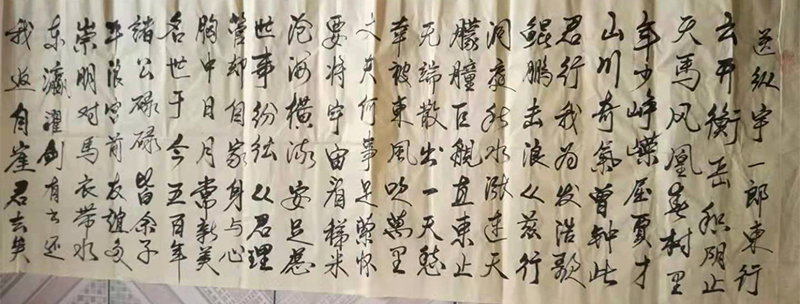 送纵宇一郎東行
云开衡岳积阴止
天马凤凰春村里
年少峥嵘屈贾才
山川奇氣曾钟此
君行我为发浩歌
鲲鹏击浪从兹行
洞庭秋水涨连天
朦艟巨舰直東止
无端散出一天愁
幸被東风吹萬里
丈夫何事足萦怀
要将宇宙看稊米
沧海横流安足虑
世事纷纭从君理
管却自家身与心
胸中日月常新美
名世于今五百年
諸公碌碌皆余子
平浪宫前友谊多
崇明对馬衣带水
东瀛濯剑有书还
我返自崖君去矣